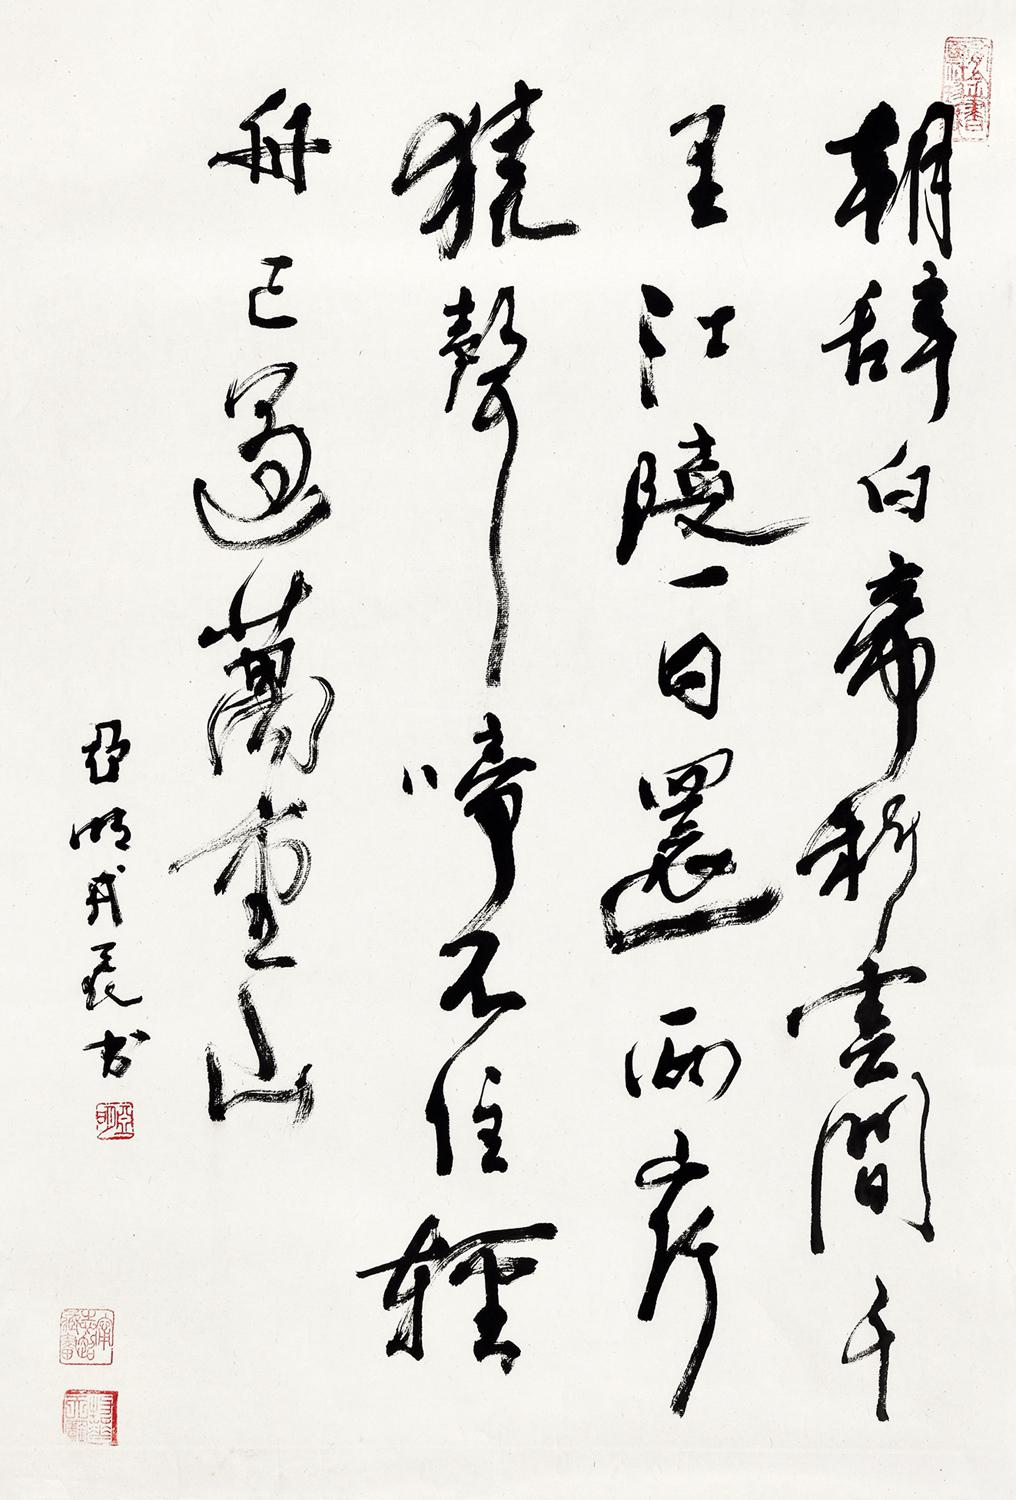 朝辞白帝彩雲間千
里江陵一日還两岸
猿聲啼不住輕
舟已過萬重山
亞明戊辰书
亞明